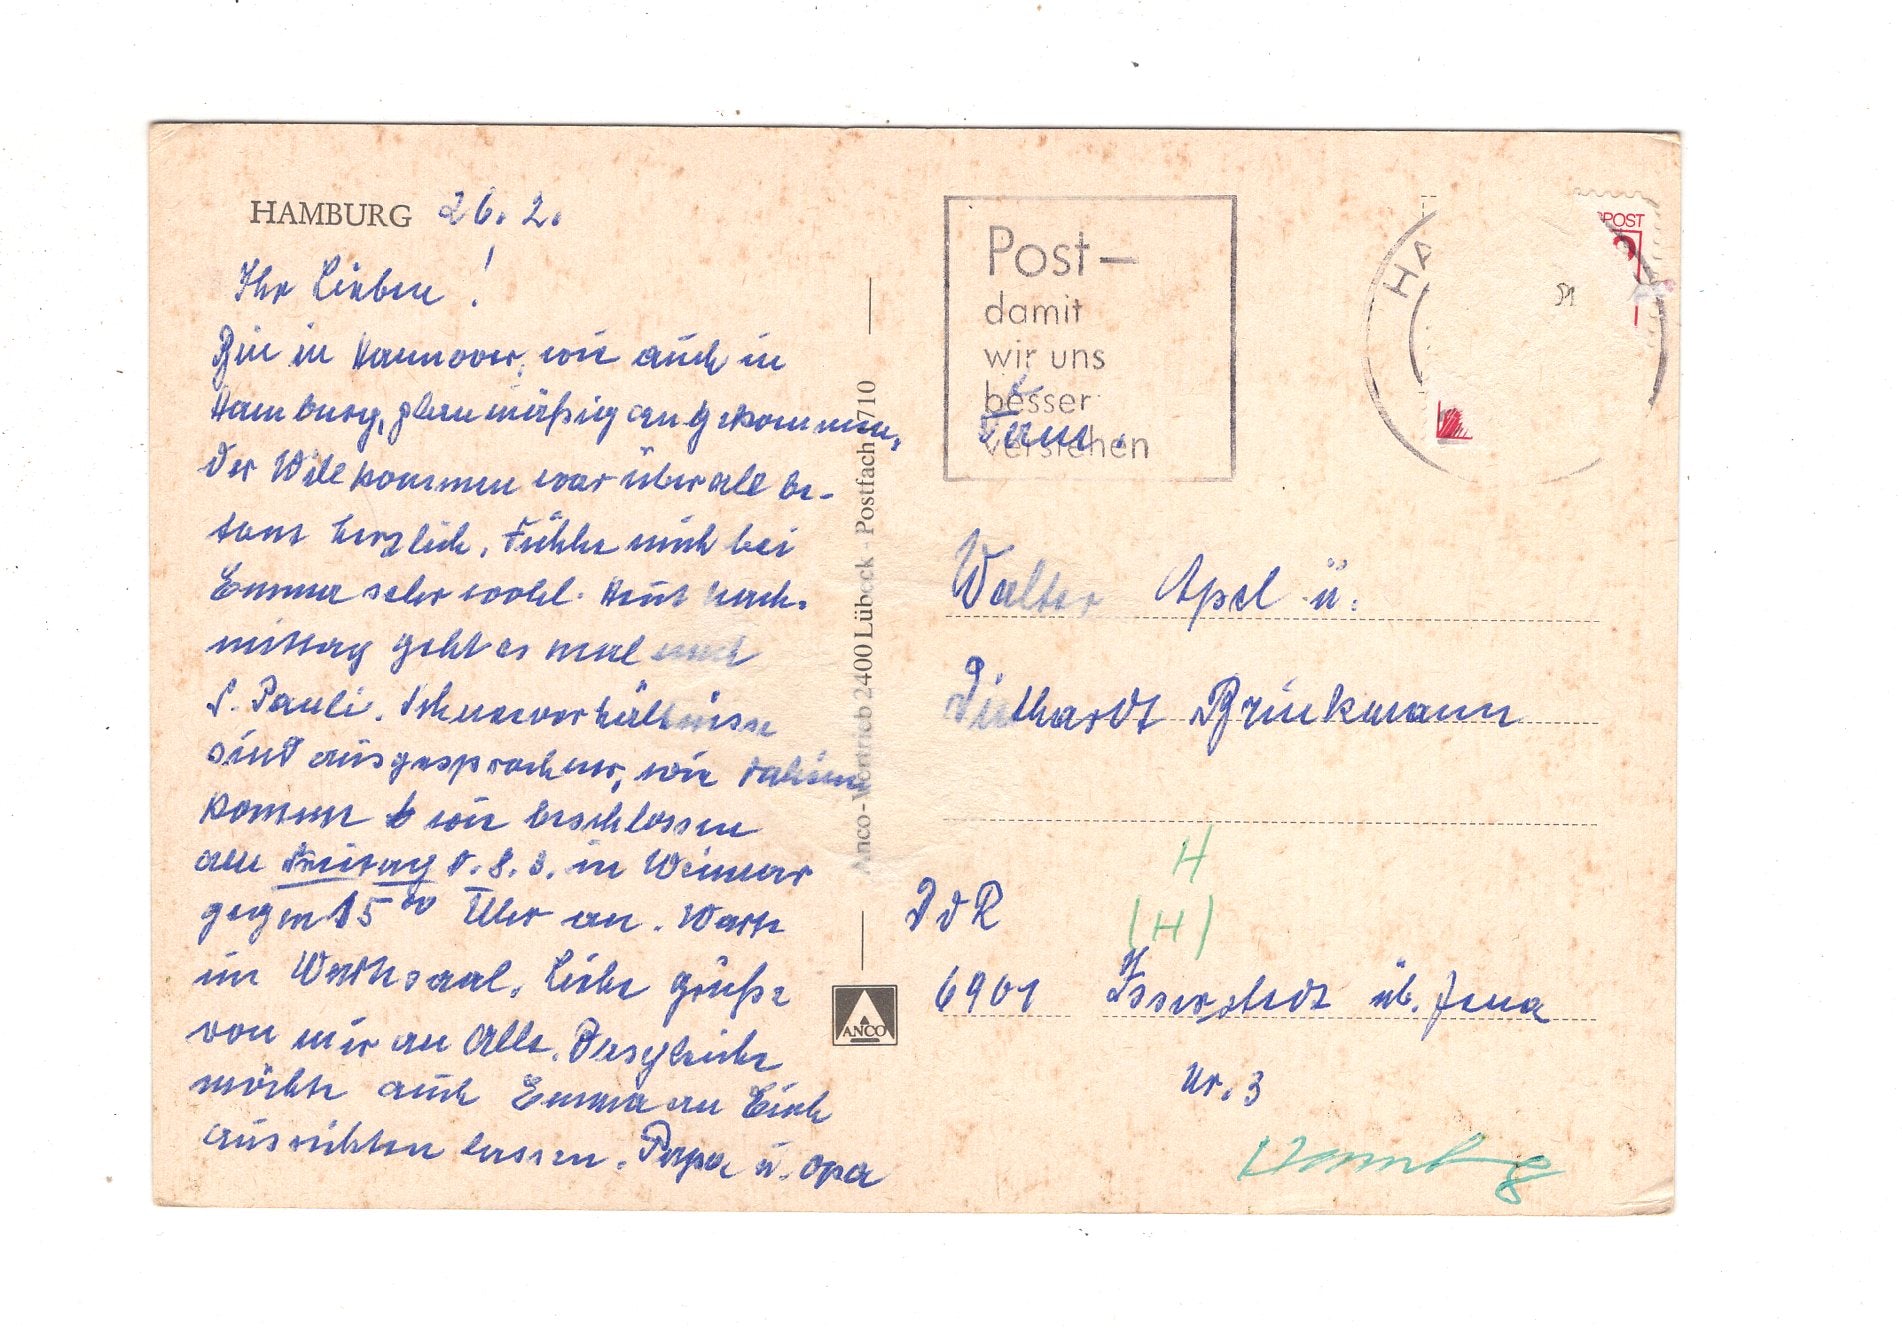 HAMBURG 26. 2.
Ihr Lieben!
Bin in Hannover, wie auch in
Hamburg, planmäßig angekommen,
der Willkommen war überall be-
tont herzlich. Fühle mich bei
Emma sehr wohl. Heut nach-
mittag geht es mal nach
S. Pauli. Schneeverhältnisse
sind ausgesprochener, wie daheim
komme wie beschlossen
am Freitag d. 8. 3. in Weimar
gegen 15 00 Uhr an. Warte
im Wartesaal. Liebe Grüße
von mir an Alle. Desgleiche
möchte auch Emma an Euch
ausrichten lassen. Papa u. Opa
Anco - Vertrieb 2400 Lübeck - Postfach 1710
ANCO
Post-
damit
wir uns
besser
verstehen
HA
POST
51
Fam.
Walter Apel u.
Diethardt Brinkmann
H
(H)
DDR
6901 Isserstedt üb. Jena
Nr. 3
Hamburg